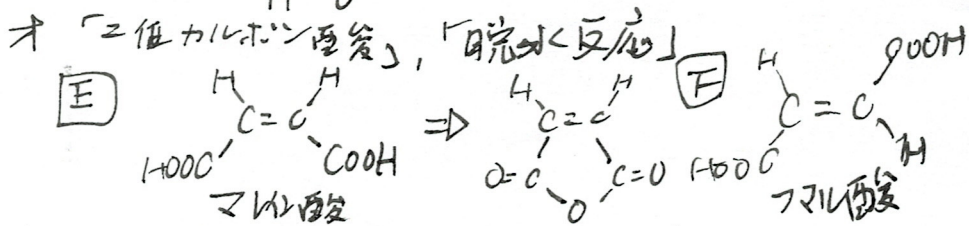 オ 「2価カルボン酸」,「脱水反応」
E
H H
C=C
HOOC COOH
マレイン酸
⇒
H H
C=C
O=C C=O
O
F
H COOH
C=C
HOOC H
フマル酸